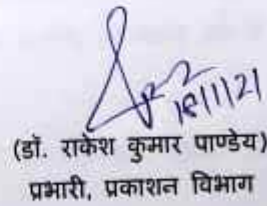 18/11/21
(डॉ. राकेश कुमार पाण्डेय)
प्रभारी, प्रकाशन विभाग